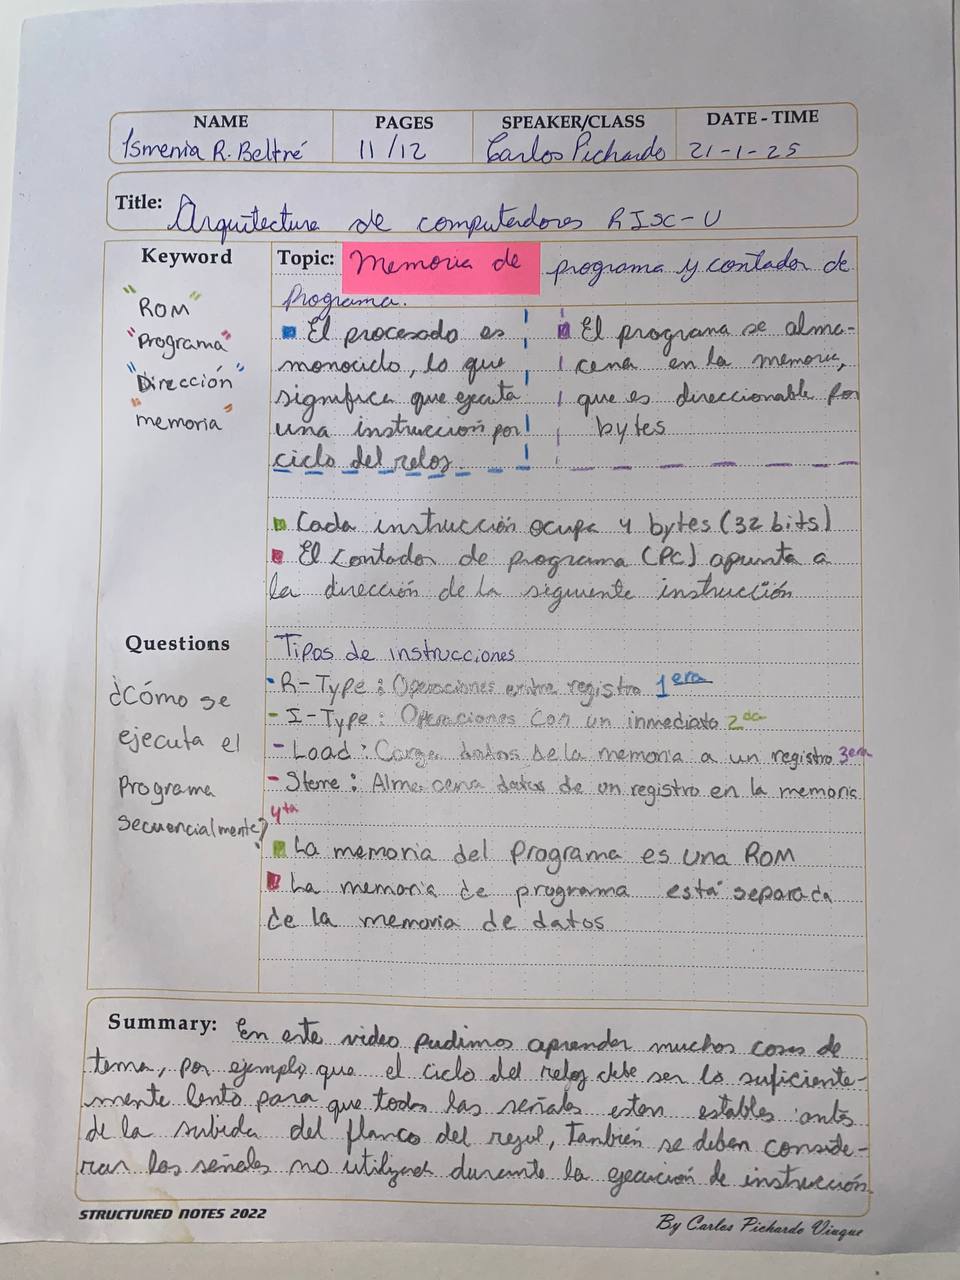 NAME PAGES SPEAKER/CLASS DATE - TIME
Ismenia R. Beltré 11/12 Carlos Pichardo 21-1-25
Title: Arquitectura de computadores RISC-V
Keyword
"ROM"
"Programa"
"Dirección"
"memoria"
Topic: Memoria de programa y contador de
Programa.
El procesado es
monociclo, lo que
significa que ejecuta
una instruccion por
ciclo del reloj.
El programa se alma-
cena en la memoria,
que es direccionable por
bytes
Cada instrucción ocupa 4 bytes (32 bits)
El contador de programa (PC) apunta a
la dirección de la siguiente instrucción
Questions
¿Cómo se
ejecuta el
Programa
secuencialmente?
Tipos de instrucciones
R-Type: Operaciones entre registro 1era
- I-Type: Operaciones con un inmediato 2da
- Load: Carga datos de la memoria a un registro 3era
- Storre: Almacena datos de un registro en la memoria
4ta
La memoria del Programa es una ROM
La memoria de programa está separada
de la memoria de datos
Summary: En este video pudimos aprender muchos cosas de
tema, por ejemplo que el ciclo del reloj debe ser lo suficiente-
mente lento para que todas las señales esten estables antes
de la subida del flanco del, también se deben conside-
rar las señales no utilizadas durante la ejecución de instrucción.
STRUCTURED NOTES 2022
By Carlos Pichardo Viuque